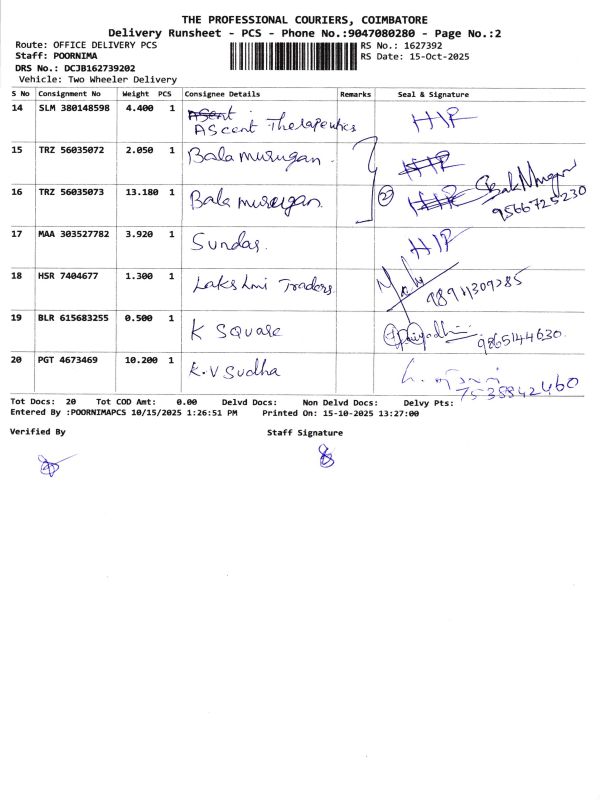 THE PROFESSIONAL COURIERS, COIMBATORE
Delivery Runsheet - PCS - Phone No.:9047080280 - Page No.:2
Route: OFFICE DELIVERY PCS RS No.: 1627392
Staff: POORNIMA RS Date: 15-Oct-2025
DRS No.: DCJB162739202
Vehicle: Two Wheeler Delivery
S No Consignment No Weight PCS Consignee Details Remarks Seal & Signature
14 SLM 380148598 4.400 1 Ascent Therapeutics HIP
15 TRZ 56035072 2.050 1 Balamurugan
16 TRZ 56035073 13.180 1 Balamurugan 2 9566725230
17 MAA 303527782 3.920 1 Sundar HIP
18 HSR 7404677 1.300 1 Lakshmi Traders
19 BLR 615683255 0.500 1 K Square 9865144630
20 PGT 4673469 10.200 1 K.V Sudha 7538842460
Tot Docs: 20 Tot COD Amt: 0.00 Delvd Docs: Non Delvd Docs: Delvy Pts:
Entered By :POORNIMAPCS 10/15/2025 1:26:51 PM Printed On: 15-10-2025 13:27:00
Verified By Staff Signature